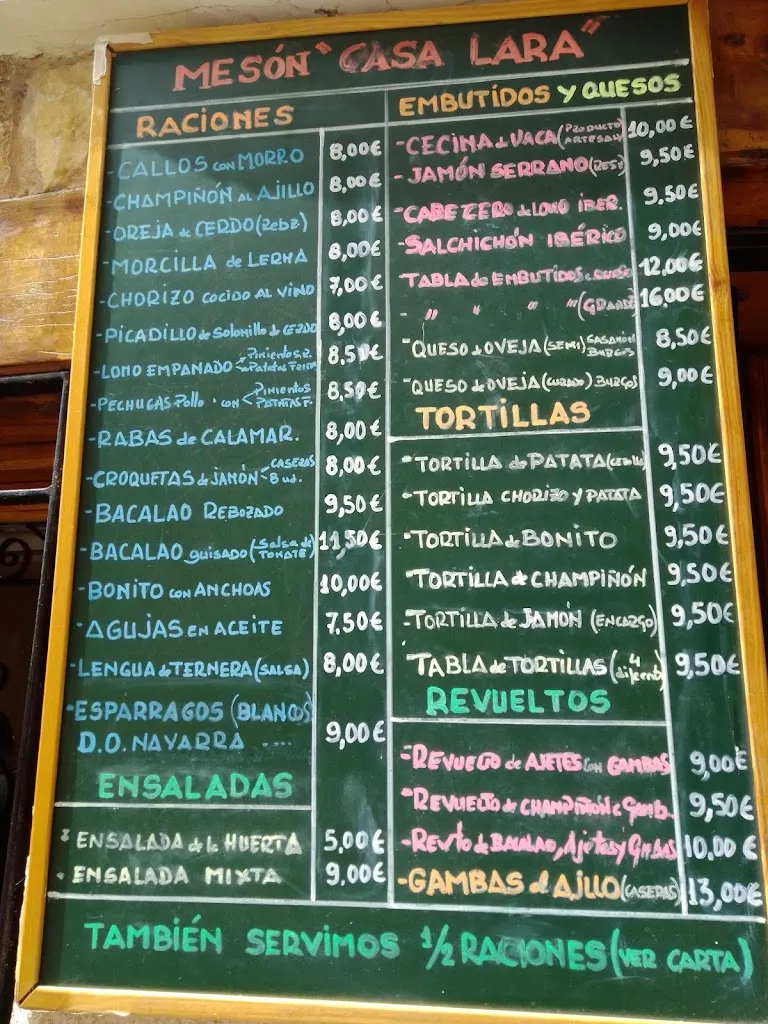 MESÓN "CASA LARA"
RACIONES
-CALLOS CON MORRO 8,00€
-CHAMPIÑÓN AL AJILLO 8,00€
-OREJA de CERDO (Reb2) 8,00€
-MORCILLA de LERMA 8,00€
-CHORIZO COCIDO AL VINO 7,00€
-PICADILLO de Solomillo de CERDO 8,00€
-LOMO EMPANADO Pimientos R. Patatas Fritas 8,50€
-PECHUGAS Pollo CON Pimientos PATATAS F. 8,50€
-RABAS de CALAMAR. 8,00€
-CROQUETAS de JAMÓN CASERAS 8 ud. 8,00€
-BACALAO REBOZADO 9,50€
-BACALAO guisado (Salsa de TOMATE) 11,50€
-BONITO CON ANCHOAS 10,00€
-AGUJAS EN ACEITE 7,50€
-LENGUA de TERNERA (SALSA) 8,00€
-ESPARRAGOS (BLANCOS)
D.O. NAVARRA .... 9,00€
ENSALADAS
ENSALADA de la HUERTA 5,00€
- ENSALADA MIXTA 9,00€
EMBUTIDOS Y QUESOS
-CECINA de VACA (PRODUCTO ARTESAN) 10,00€
-JAMÓN SERRANO 9,50€
-CABEZERO de LOMO IBER. 9,50€
-SALCHICHÓN IBÉRICO 9,00€
TABLA de EMBUTIDOS 12,00€
- " " " " (GRANDE) 16,00€
-QUESO de OVEJA (SEMI) SASAMÓN BURGOS 8,50€
-QUESO de OVEJA (CURADO) BURGOS 9,00€
TORTILLAS
-TORTILLA de PATATA 9,50€
-TORTILLA CHORIZO Y PATATA 9,50€
-TORTILLA de BONITO 9,50€
-TORTILLA de CHAMPIÑÓN 9,50€
-TORTILLA de JAMÓN (ENCARGO) 9,50€
TABLA de TORTILLAS (4 diferent) 9,50€
REVUELTOS
-REVUELTO de AJETES CON GAMBAS 9,00€
-REVUELTO de CHAMPIÑÓN e Gamb. 9,50€
-Revto de BACALAO, Ajetes y Gmbas 10,00€
-GAMBAS al AJILLO (CASERAS) 13,00€
TAMBIÉN SERVIMOS 1/2 RACIONES (VER CARTA)